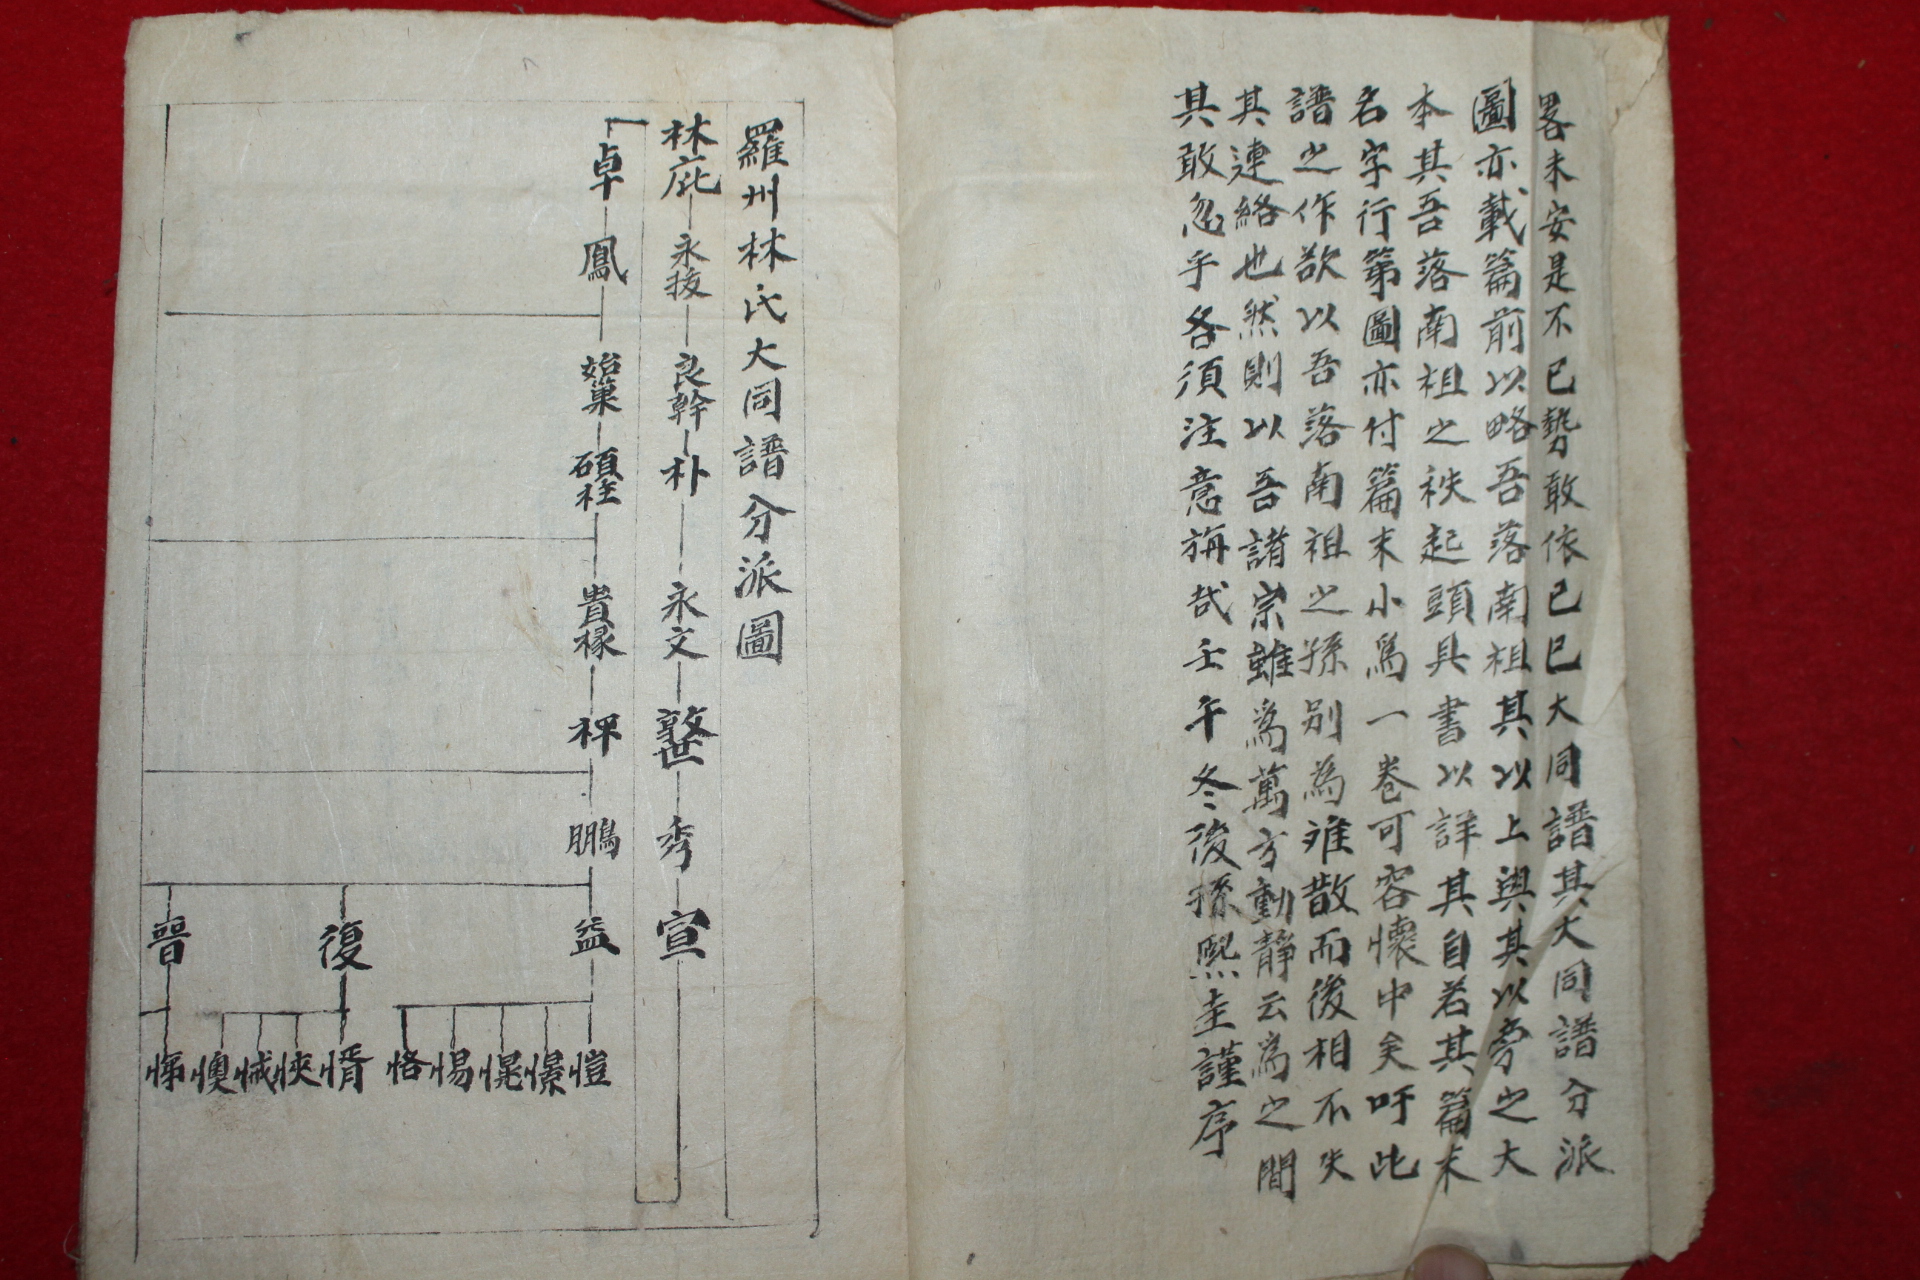 畧未安是不已㔟敢依己巳大同譜其大同譜分派
圖亦載篇前以略吾落南祖其以上與其以旁之大
本其吾落南祖之秩起頭具書以詳其自若其篇末
名字行第圖亦付篇末小爲一卷可容懷中矣吁此
譜之作欲以吾落南祖之孫別為难散而後相不失
其連絡也然則以吾諸宗雖爲萬方動靜云爲之間
其敢忽乎各須注意旃哉壬午冬後孫熙圭謹序
羅州林氏大同譜分派圖
林庇 永拔 良幹 朴 永文 秀 宣
卓 鳳 始巢 碩柱 貴椽 枰 鵬
益 復 晉
愷 憬 愰 惕 恪 惰 悏 懊 悌